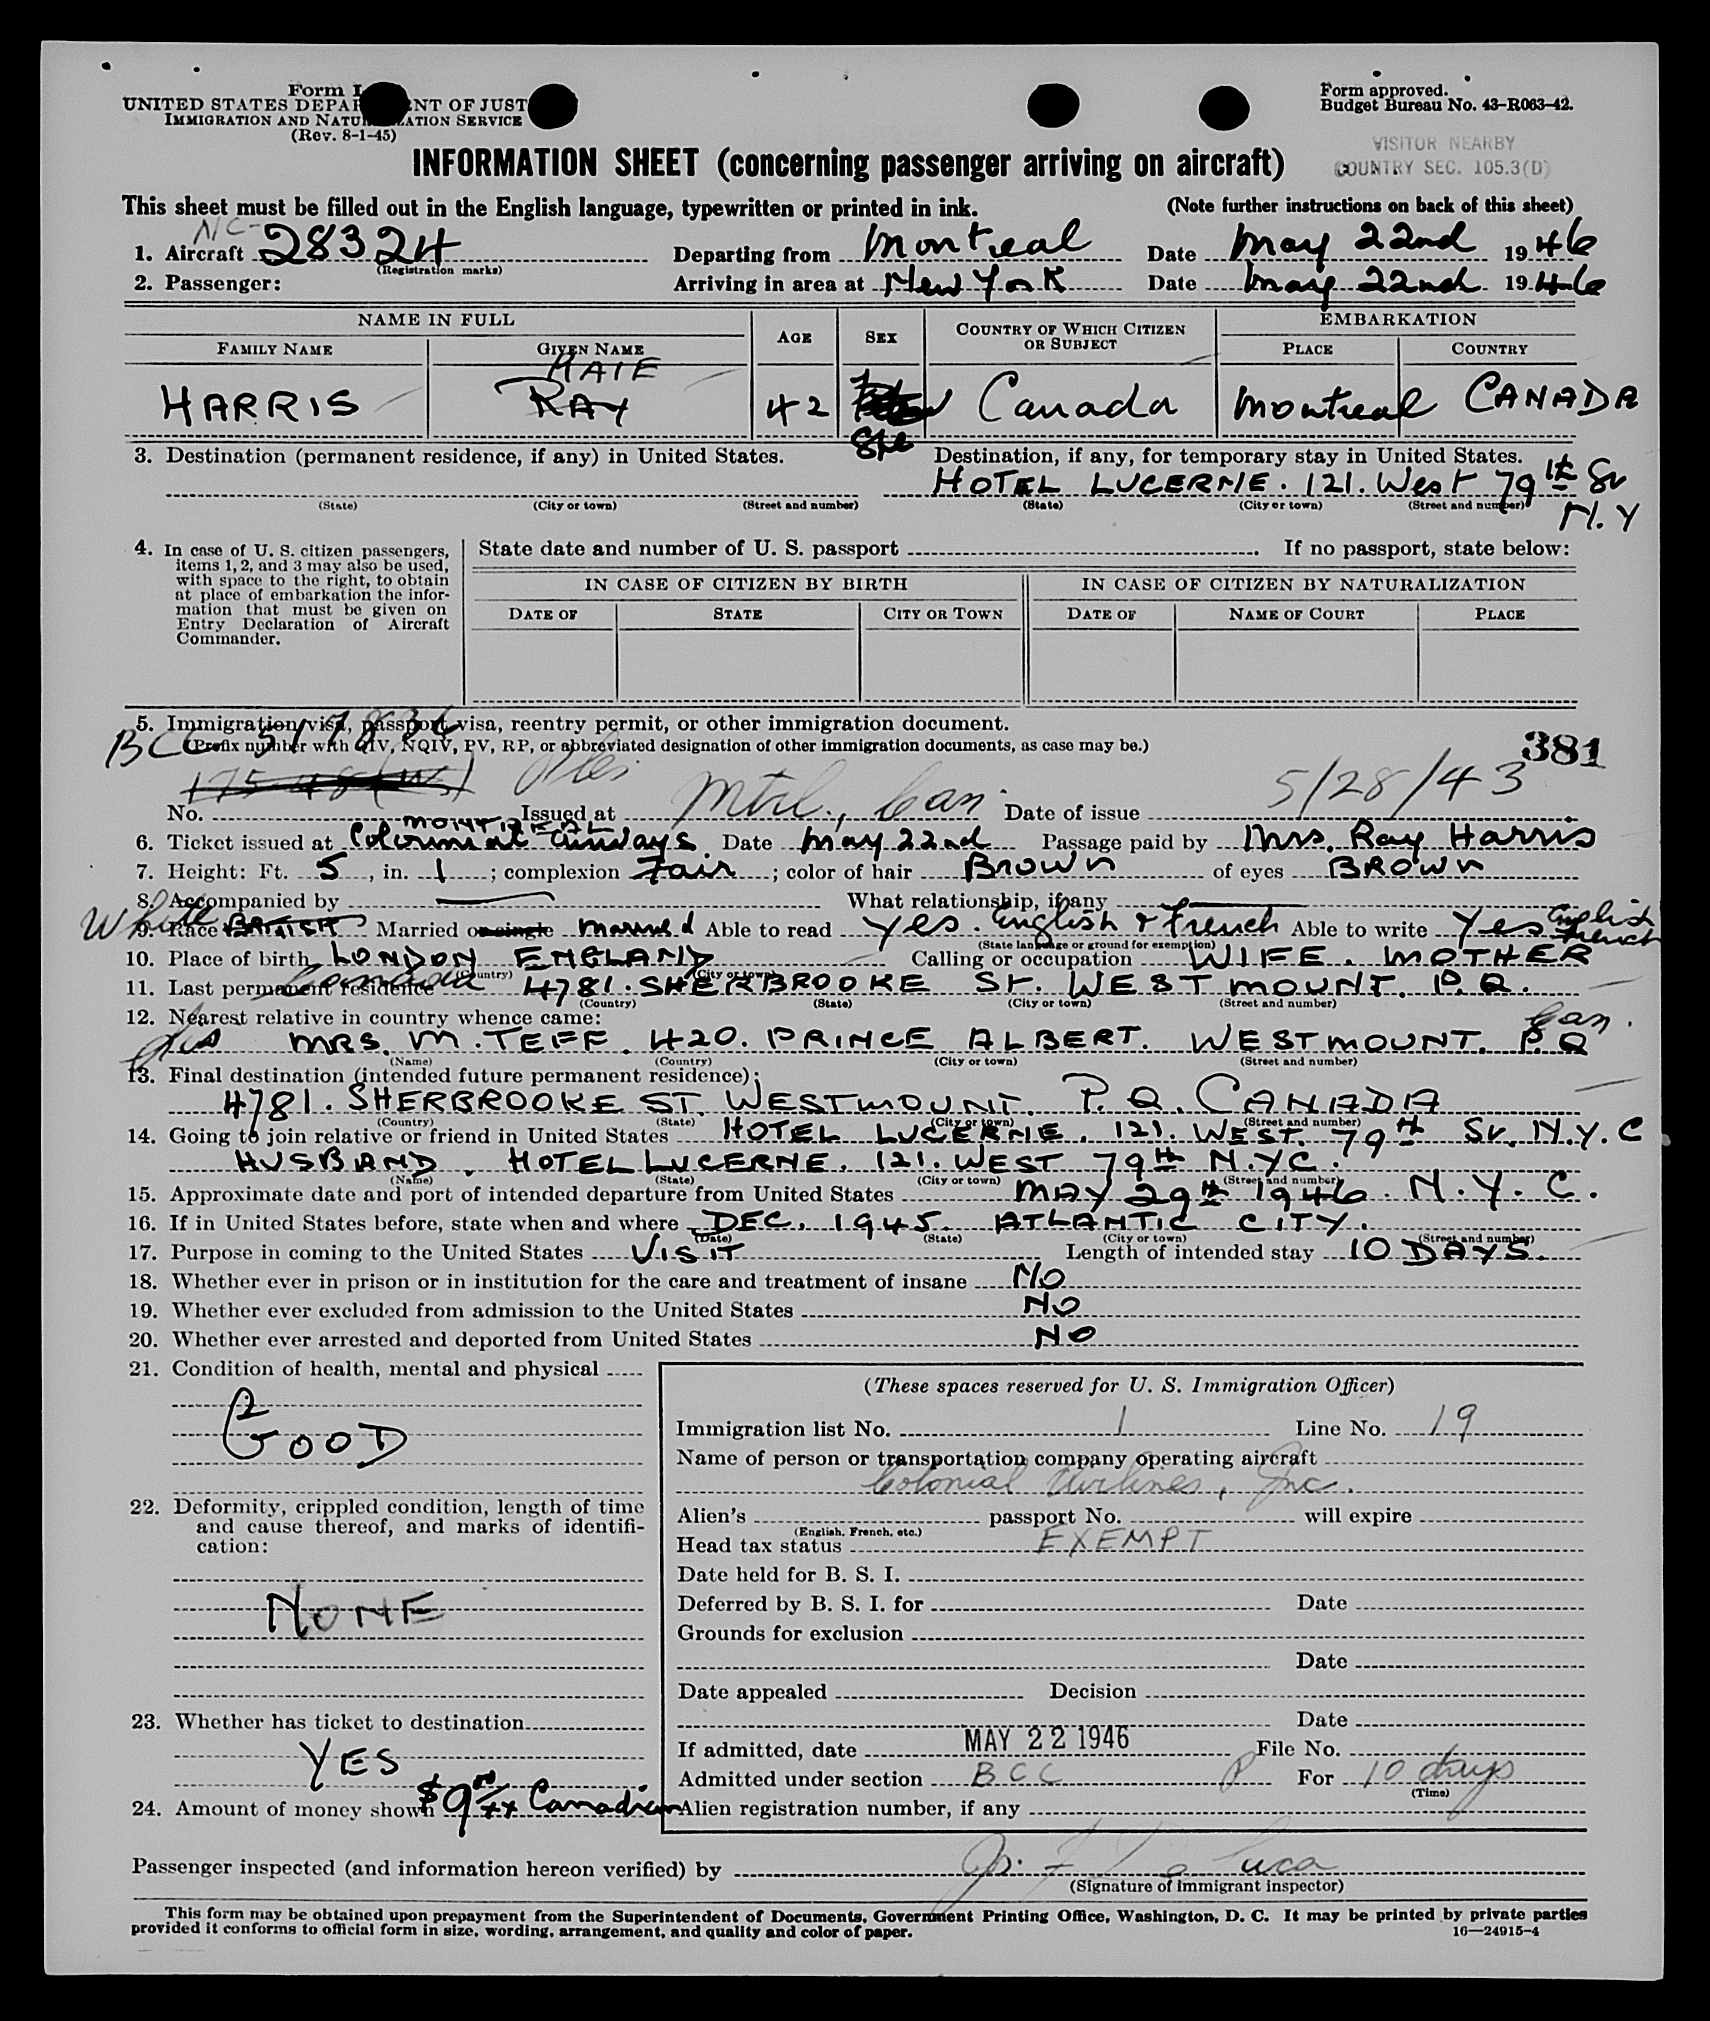 Form I
UNITED STATES DEPAR NT OF JUST
IMMIGRATION AND NATU ATION SERVICE
(Rev. 8-1-45)
Form approved.
Budget Bureau No. 43-R063-42.
VISITOR NEARBY
COUNTRY SEC. 105.3(D)
INFORMATION SHEET (concerning passenger arriving on aircraft)
This sheet must be filled out in the English language, typewritten or printed in ink. (Note further instructions on back of this sheet)
NC-
1. Aircraft 28324 Departing from Montreal Date May 22nd 1946
(Registration marks)
2. Passenger: Arriving in area at New York Date May 22nd 1946
NAME IN FULL AGE SEX COUNTRY OF WHICH CITIZEN OR SUBJECT EMBARKATION
FAMILY NAME GIVEN NAME PLACE COUNTRY
HARRIS RAY 42 Canada Montreal CANADA
She
3. Destination (permanent residence, if any) in United States. Destination, if any, for temporary stay in United States.
HOTEL LUCERNE. 121. West 79th St
(State) (City or town) (Street and number) (State) (City or town) (Street and number)
N.Y
4. In case of U. S. citizen passengers, items 1, 2, and 3 may also be used, with space to the right, to obtain at place of embarkation the information that must be given on Entry Declaration of Aircraft Commander.
State date and number of U. S. passport . If no passport, state below:
IN CASE OF CITIZEN BY BIRTH IN CASE OF CITIZEN BY NATURALIZATION
DATE OF STATE CITY OR TOWN DATE OF NAME OF COURT PLACE
5. Immigration visa, passport visa, reentry permit, or other immigration document.
BCC 517836
(Prefix number with QIV, NQIV, PV, RP, or abbreviated designation of other immigration documents, as case may be.)
381
No. Issued at Mtrl., Can. Date of issue 5/28/43
MONTREAL
6. Ticket issued at Colonial Airways. Date May 22nd Passage paid by Mrs. Ray Harris
7. Height: Ft. 5, in. 1; complexion Fair; color of hair BROWN of eyes BROWN
8. Accompanied by What relationship, if any
White
9. Race BRITISH Married or single Married Able to read Yes. English & French Able to write Yes English French
(State language or ground for exemption)
10. Place of birth LONDON ENGLAND Calling or occupation WIFE. MOTHER
(Country) (City or town)
11. Last permanent residence Canada 4781. SHERBROOKE St. WESTMOUNT. P.Q.
(Country) (State) (City or town) (Street and number)
12. Nearest relative in country whence came:
Sis MRS. M. TEFF. 420. PRINCE ALBERT. WESTMOUNT. P.Q Can.
(Name) (Country) (City or town) (Street and number)
13. Final destination (intended future permanent residence):
4781. SHERBROOKE ST. WESTMOUNT. P.Q. CANADA
(Country) (State) (City or town) (Street and number)
14. Going to join relative or friend in United States HOTEL LUCERNE. 121. WEST. 79TH St. N.Y.C
HUSBAND. HOTEL LUCERNE. 121. WEST 79th N.YC.
(Name) (State) (City or town) (Street and number)
15. Approximate date and port of intended departure from United States MAY 29th 1946. N.Y.C.
16. If in United States before, state when and where DEC. 1945. ATLANTIC CITY.
(Date) (State) (City or town) (Street and number)
17. Purpose in coming to the United States VISIT Length of intended stay 10 DAYS.
18. Whether ever in prison or in institution for the care and treatment of insane NO
19. Whether ever excluded from admission to the United States NO
20. Whether ever arrested and deported from United States NO
21. Condition of health, mental and physical
GOOD
22. Deformity, crippled condition, length of time and cause thereof, and marks of identification:
NONE
23. Whether has ticket to destination
YES
24. Amount of money shown $9 00/xx Canadian
(These spaces reserved for U. S. Immigration Officer)
Immigration list No. 1 Line No. 19
Name of person or transportation company operating aircraft
Colonial Airlines, Inc.
Alien's passport No. will expire
(English, French, etc.)
Head tax status EXEMPT
Date held for B. S. I.
Deferred by B. S. I. for Date
Grounds for exclusion
Date
Date appealed Decision
Date
If admitted, date MAY 22 1946 File No.
Admitted under section BCC P For 10 days
(Time)
Alien registration number, if any
Passenger inspected (and information hereon verified) by
(Signature of immigrant inspector)
This form may be obtained upon prepayment from the Superintendent of Documents, Government Printing Office, Washington, D. C. It may be printed by private parties
provided it conforms to official form in size, wording, arrangement, and quality and color of paper. 16—24915-4